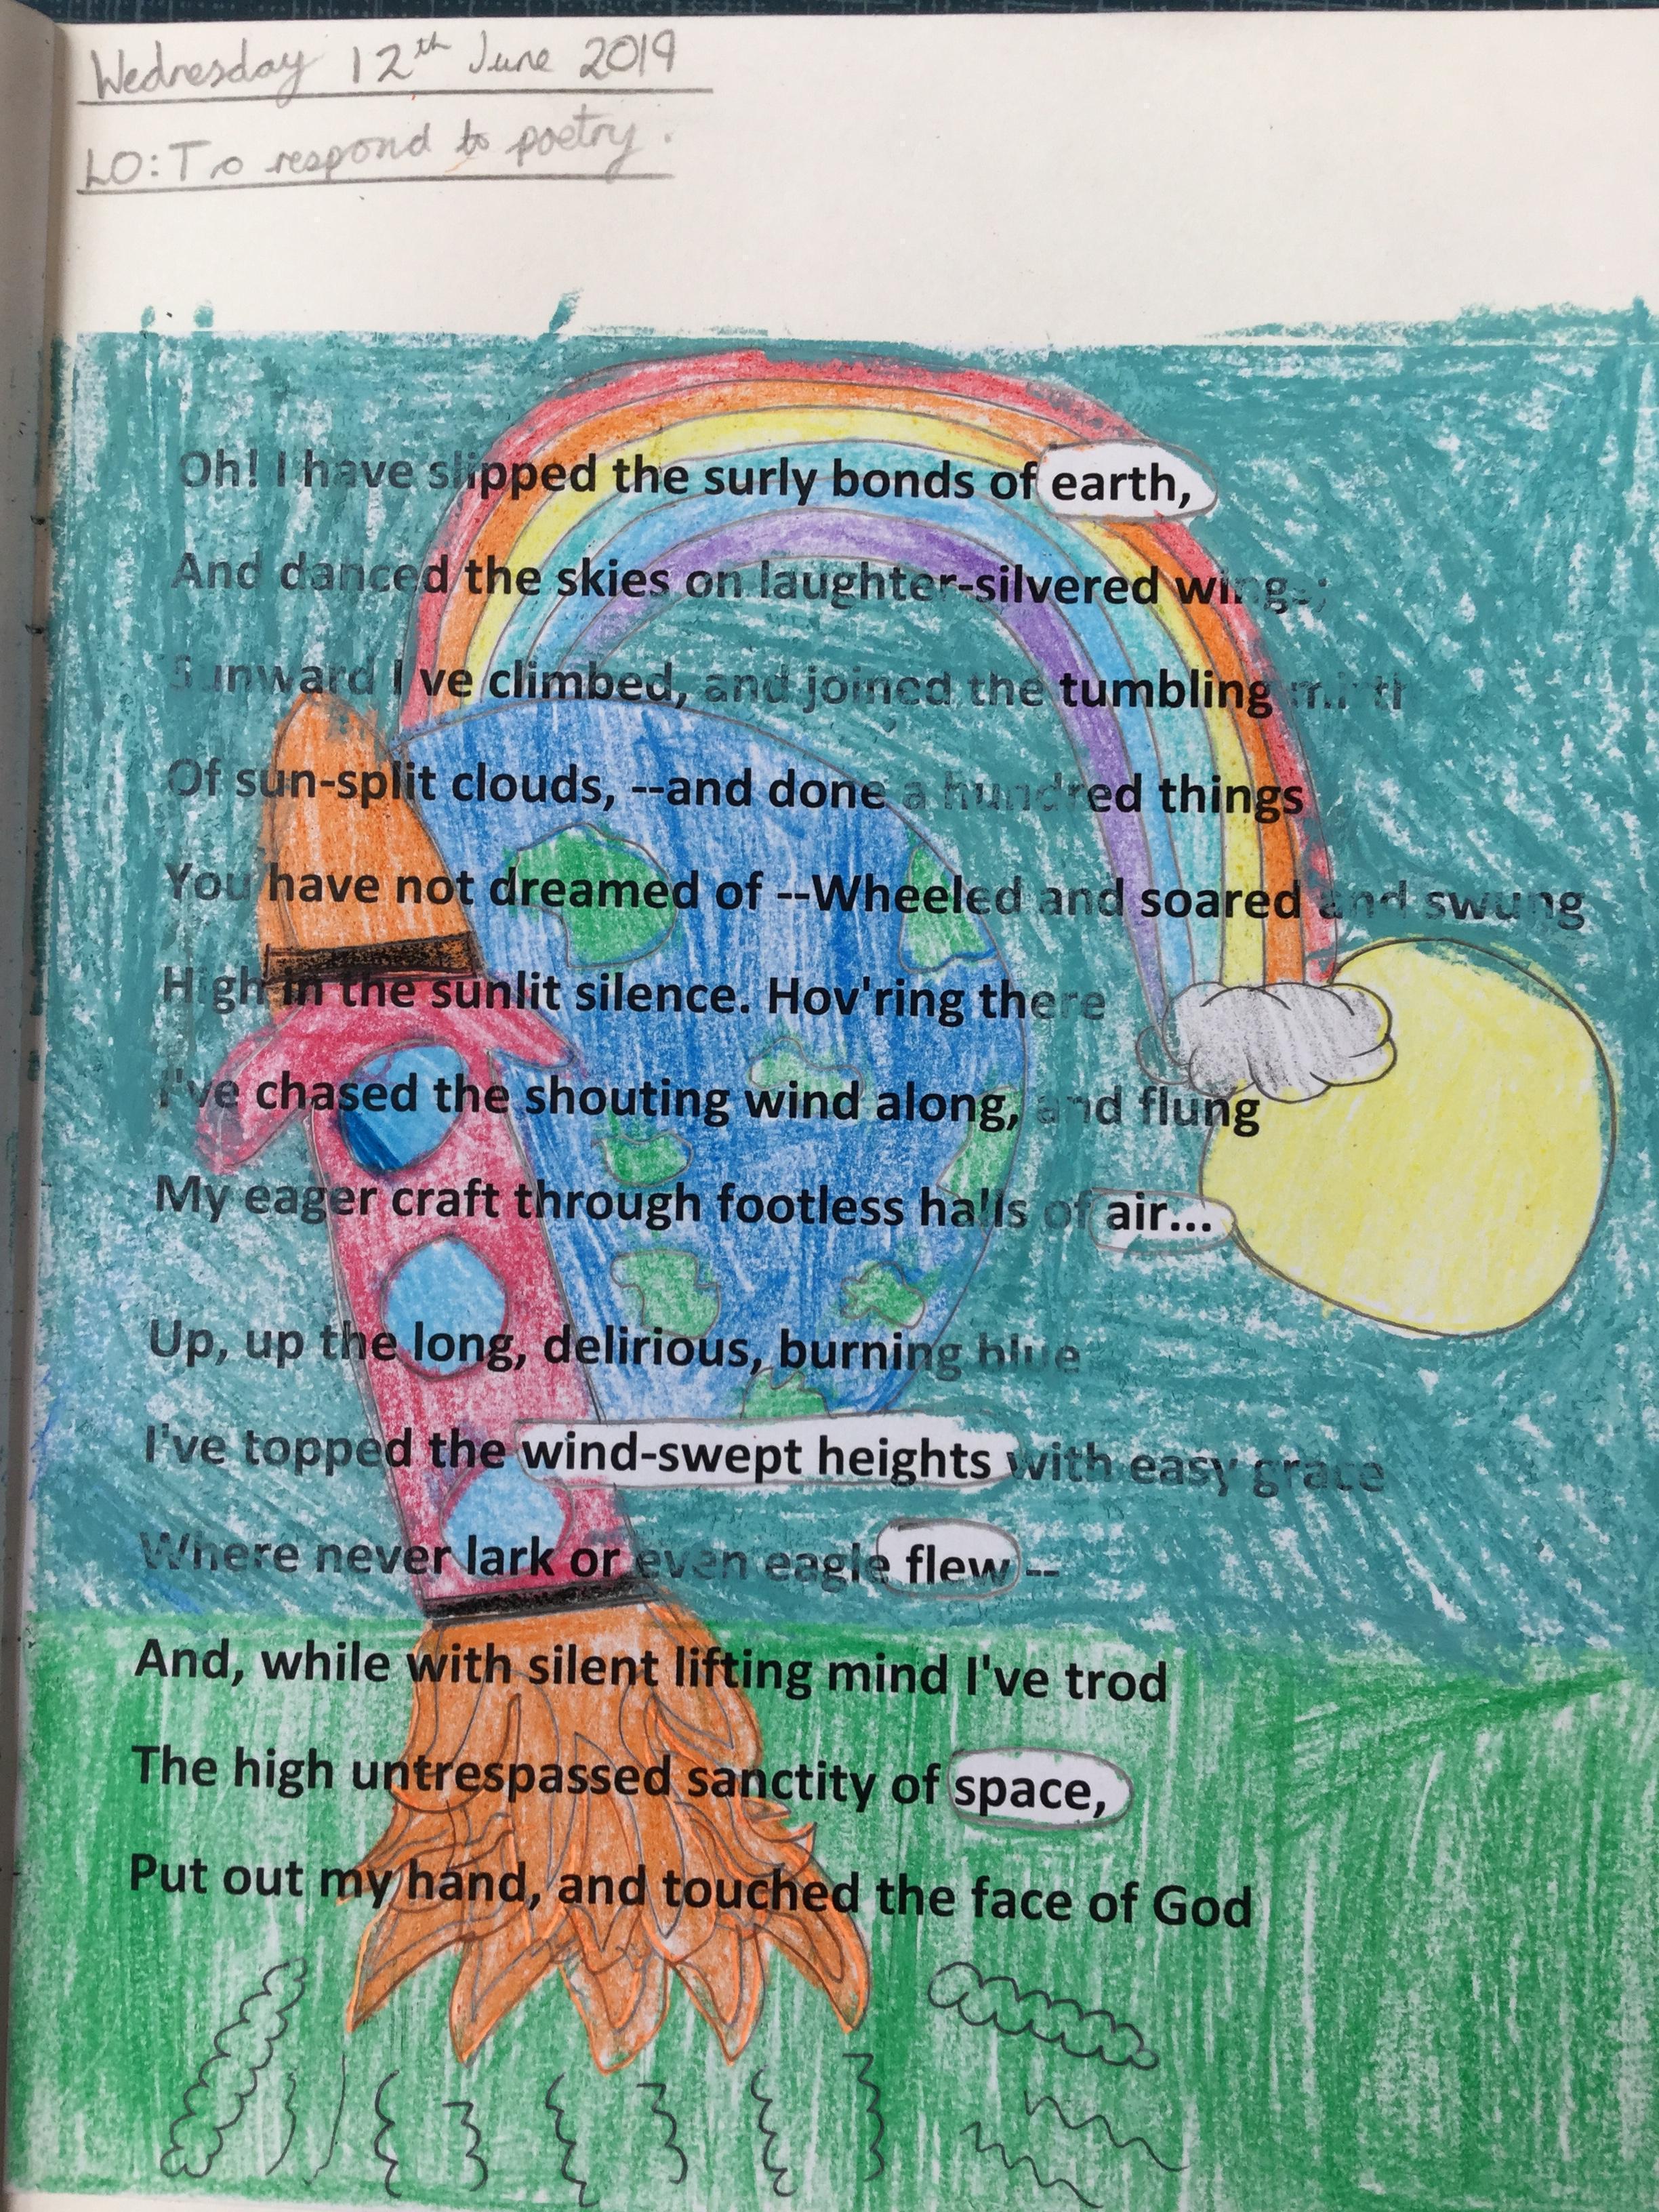 Wednesday 12th June 2019
LO: To respond to poetry.
Oh! I have slipped the surly bonds of earth,
And danced the skies on laughter-silvered wings;
Sunward I've climbed, and joined the tumbling mirth
Of sun-split clouds, --and done a hundred things
You have not dreamed of --Wheeled and soared and swung
High in the sunlit silence. Hov'ring there
I've chased the shouting wind along, and flung
My eager craft through footless halls of air...
Up, up the long, delirious, burning blue
I've topped the wind-swept heights with easy grace
Where never lark or even eagle flew --
And, while with silent lifting mind I've trod
The high untrespassed sanctity of space,
Put out my hand, and touched the face of God